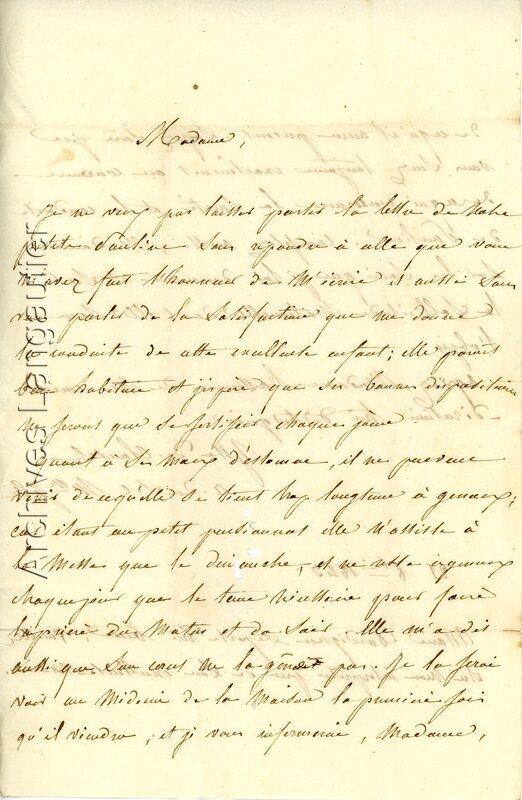 Madame,
Je ne veux pas laisser partir la lettre de Notre
petite Pauline sans repondre à celle que vous
m'avez fait l'honneur de M'écrire et aussi sans
vous parler de la Satisfaction que me donne
la conduite de cette excellente enfant; elle parait
bien habituée et j'espère que ses bonnes dispositions
ne feront que se fortifier chaque jour
Quant à Ses Maux d'estomac, il ne peuvent
venir de ce qu'elle se tient trop longtems à genoux;
car étant au petit pensionnat elle n'assiste à
la Messe que le dimanche, et ne reste à genoux
chaque jour que le tems nécessaire pour faire
la prière du Matin et du Soir. Elle m'a dit
aussi que Son corset ne la gênait pas. Je la ferai
voir au Médecin de la Maison la première fois
qu'il viendra; et je vous informerai, Madame,
Archives Lamaignal-Jolinagier